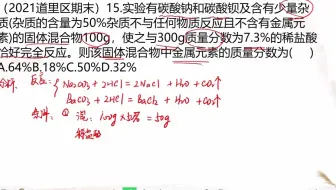 (2021道里区期末) 15.实验有碳酸钠和碳酸钡及含有少量杂
质(杂质的含量为50%杂质不与任何物质反应且不含有金属元
素)的固体混合物100g，使之与300g质量分数为7.3%的稀盐酸
恰好完全反应。则该固体混合物中金属元素的质量分数为( )
A.64%B.18%C.50%D.32%
反应: Na₂CO₃+2HCl=2NaCl+H₂O+CO₂↑
BaCO₃+2HCl=BaCl₂+H₂O+CO₂↑
① 混: 100g×50%=50g
稀盐酸